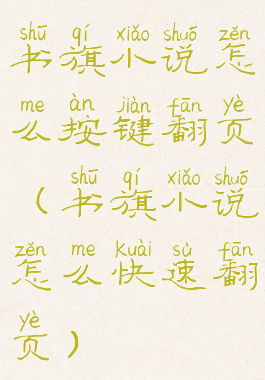 shū qí xiǎo shuō zěn
书旗小说怎
me àn jiàn fān yè
么按键翻页
shū qí xiǎo shuō
(书旗小说
zěn me kuài sù fān
怎么快速翻
yè
页)